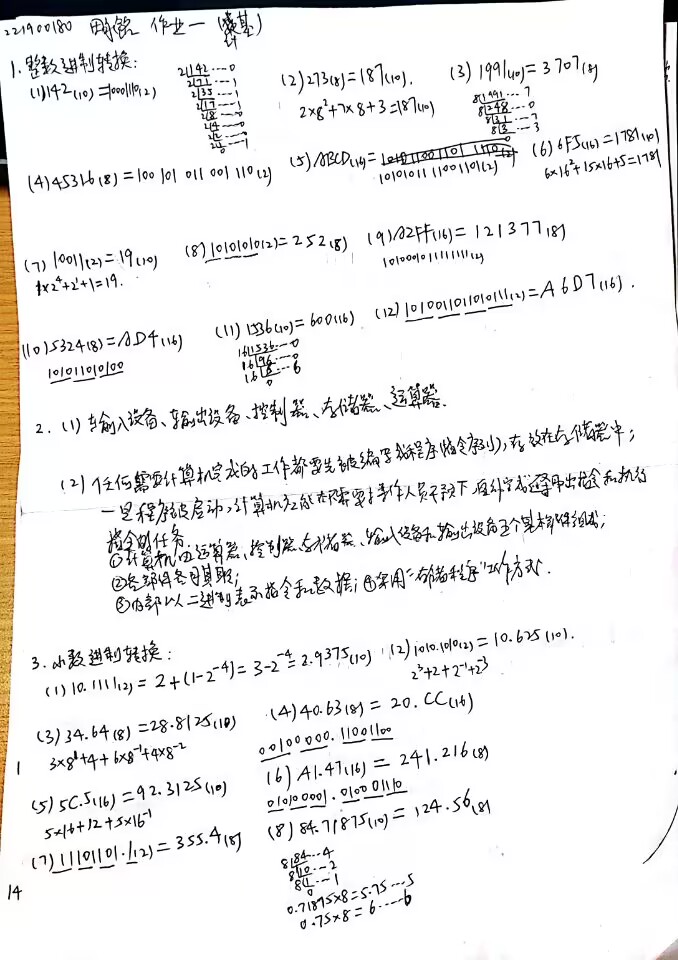 221900180 作业一 (计基)
1.整数进制转换:
(1)142(10)=10001110(2)
2|142…0
2|71…1
2|35…1
2|17…1
2|8…0
2|4…0
2|2…0
2|1…1
0
(2)273(8)=187(10).
2×8²+7×8+3=187(10)
(3)1991(10)=3707(8)
8|1991…7
8|248…0
8|31…7
8|3…3
0
(4)45316(8)=100 101 011 001 110(2)
(5)ABCD(16)=
1010101111001101(2)
(6)6F5(16)=1781(10)
6×16²+15×16+5=1781
(7)10011(2)=19(10)
1×2⁴+2¹+1=19.
(8)10101010(2)=252(8)
(9)A2FF(16)=121377(8)
1010001011111111(2)
(10)5324(8)=AD4(16)
101011010100
(11)1536(10)=600(16)
16|1536…0
16|96…0
16|6…6
0
(12)1010011011010111(2)=A6D7(16).
2.(1)输入设备、输出设备、控制器、存储器、运算器.
(2)任何需要计算机完成的工作都要先被编写成程序(指令序列),存放在存储器中;
一旦程序被启动,计算机应能在不需要操作人员干预下,自动完成逐条取出指令和执行
指令的任务.
①计算机由运算器、控制器、存储器、输入设备和输出设备五个基本部件组成;
②各部件各司其职;
③内部以二进制表示指令和数据;④采用"存储程序"工作方式.
3.小数进制转换:
(1)10.1111(2)=2+(1-2⁻⁴)=3-2⁻⁴=2.9375(10)
(2)1010.101(2)=10.625(10).
2³+2+2⁻¹+2⁻³
(3)34.64(8)=28.8125(10)
3×8¹+4+6×8⁻¹+4×8⁻²
(4)40.63(8)=20.CC(16)
00100000.11001100
(5)5C.5(16)=92.3125(10)
5×16+12+5×16⁻¹
(6)A1.47(16)=241.216(8)
01010001.010001110
(7)11101101.1(2)=355.4(8)
(8)84.71875(10)=124.56(8)
8|84…4
8|10…2
8|1…1
0
0.71875×8=5.75…5
0.75×8=6……6
1
14